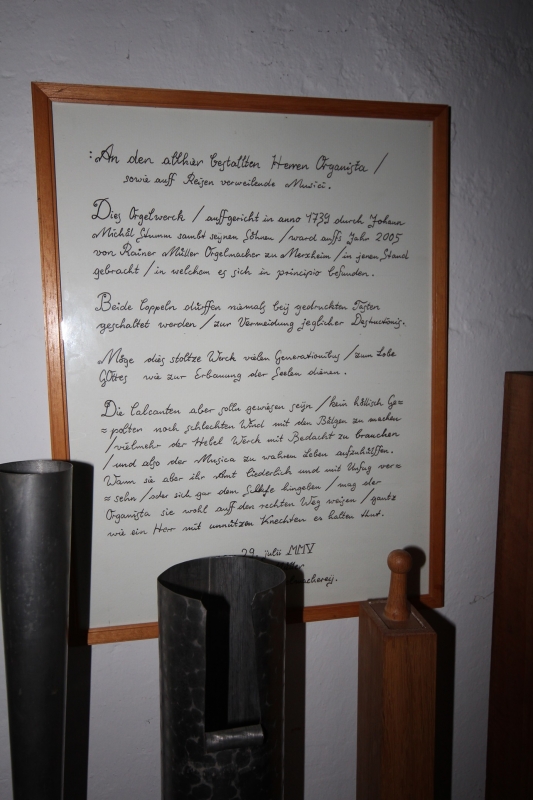 : An den allhier bestallten Herren Organista /
sowie auff Reisen verweilende Musici.
Dies Orgelwerck / auffgericht in anno 1739 durch Johann
Michäl Stumm sambt seynen Söhnen / ward auffs Jahr 2005
von Rainer Müller Orgelmacher zu Merxheim / in jenen Stand
gebracht / in welchem es sich in principio befunden.
Beide Coppeln dürffen niemals beij gedruckten Tasten
geschaltet werden / zur Vermeidung jeglicher Destructionis.
Möge dies stoltze Werck vielen Generationibus / zum Lobe
GOttes wie zur Erbauung der Seelen dienen.
Die Calcanten aber solln gewiesen seijn / kein höllisch Ge=
=polter noch schlechten Wind mit den Bälgen zu machen
/ vielmehr der Hebel Werck mit Bedacht zu brauchen
/ und also der Musica zu wahrem Leben aufzuhülffen.
Wann sie aber ihr Amt liederlich und mit Unfug ver=
=sehn / oder sich gar dem Schlafe hingeben / mag der
Organista sie wohl auff den rechten Weg weisen / gantz
wie ein Herr mit unnützen Knechten es halten thut.
29. julii MMV